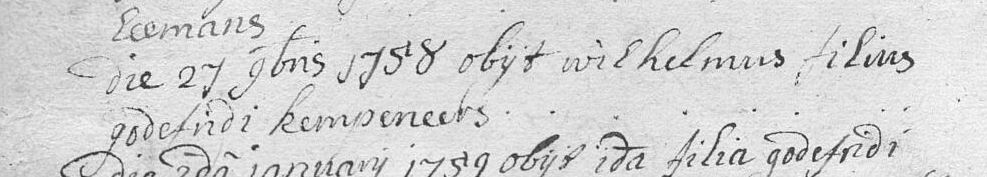 Eeemans
die 27 9bris 1758 obijt wilhelmus filius
godefridi kempeneers
die januarij 1759 obijt ida filia godefridi